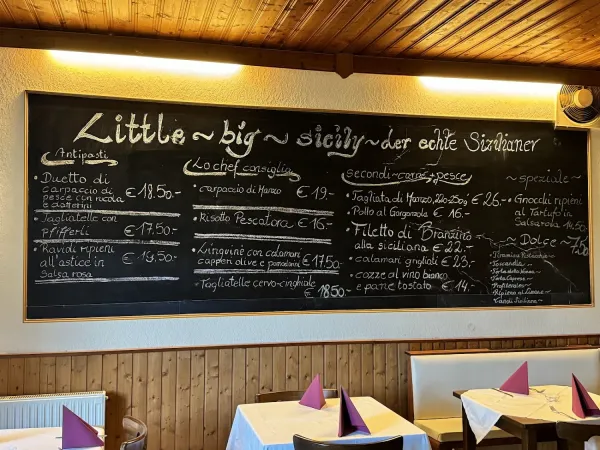 Little ~ big ~ sicily ~ der echte Sizilianer
Antipasti
• Duetto di
carpaccio di
pesce con rucola
e gamberini € 18.50.-
Tagliatelle con
pfifferli € 17.50.-
• Ravioli ripieni
all'astice in
Salsa rosa € 19.50-
Lo chef consiglia
• carpaccio di Manzo € 19.-
• Risotto Pescatora € 16.-
• Linguine con calamari
capperi olive e pomodorini € 17.50
• Tagliatelle cervo-cinghiale
€ 18.50.-
secondi-carne + pesce
• Tagliata di Manzo, 220-250g € 26.-
• Pollo al Gorgonzola € 16.-
Filetto di Branzino
alla siciliana € 22.-
• calamari grigliati € 23.-
• cozze al vino bianco
e pane tostato € 14.-
~ speziale ~
• Gnocchi ripieni
al Tartufo in
Salsa rosa
~ Dolce ~
• Tiramisu Pistacchio
• Torta della Nonna
• Torta Caprese
• Profiteroles